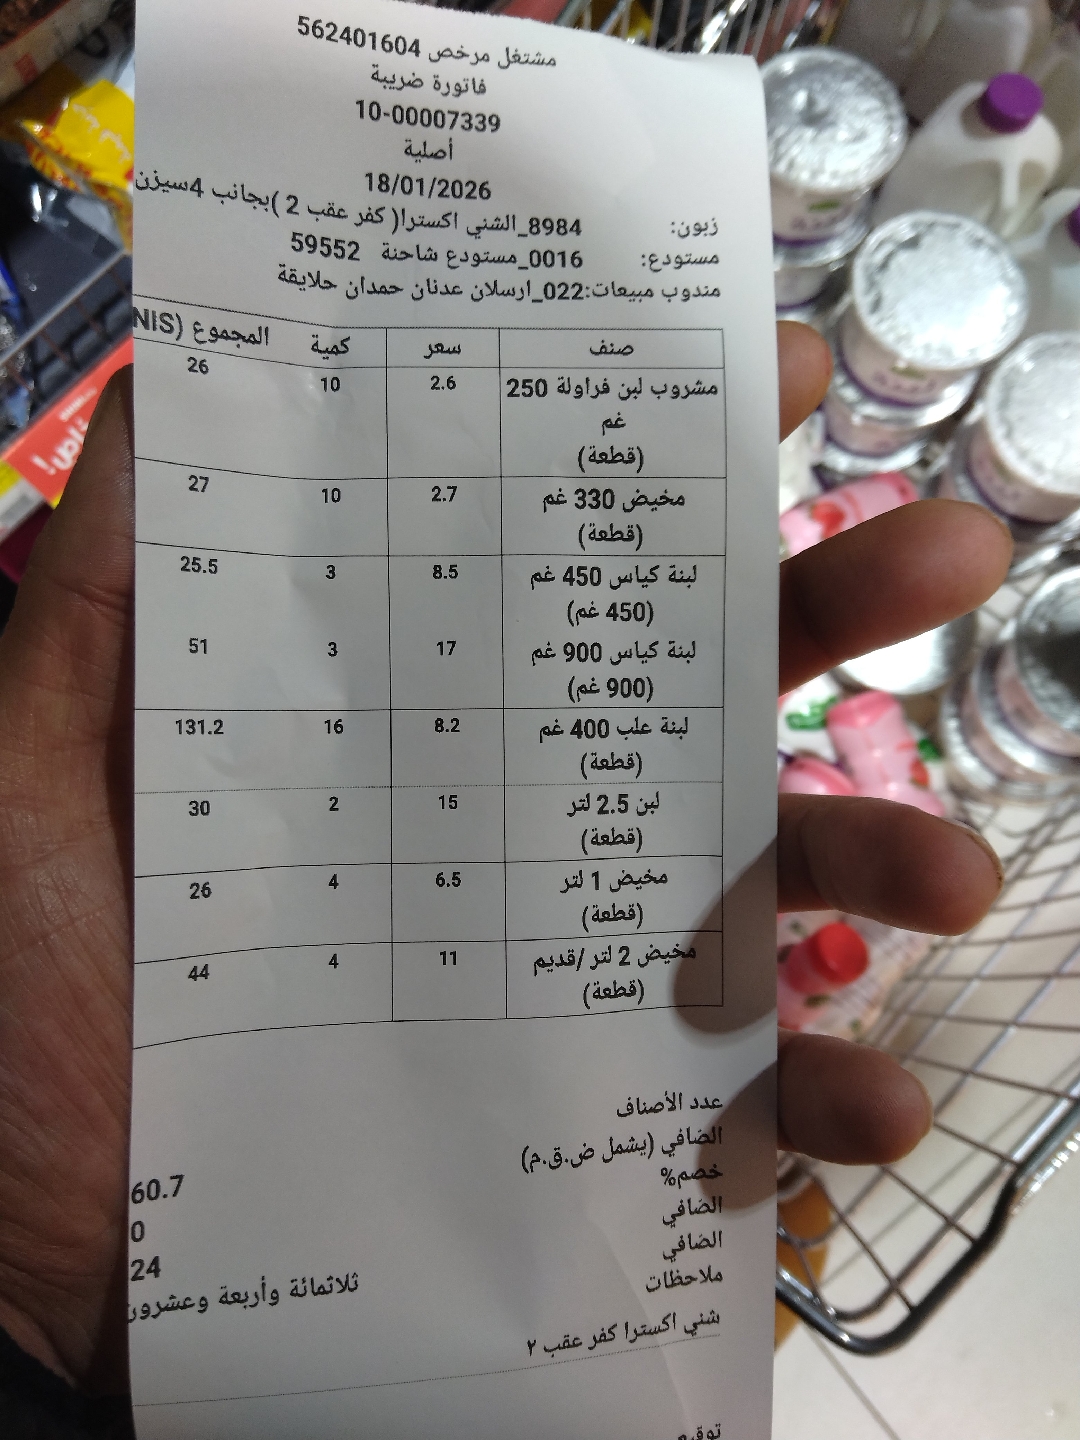 مشتغل مرخص 562401604
فاتورة ضريبة
10-00007339
أصلية
18/01/2026
زبون: 8984_الشني اكسترا( كفر عقب 2 )بجانب 4سيزن
مستودع: 0016_مستودع شاحنة 59552
مندوب مبيعات:022_ارسلان عدنان حمدان حلايقة
صنف سعر كمية المجموع (NIS
مشروب لبن فراولة 250 2.6 10 26
غم
(قطعة)
مخيض 330 غم 2.7 10 27
(قطعة)
لبنة كياس 450 غم 8.5 3 25.5
(450 غم)
لبنة كياس 900 غم 17 3 51
(900 غم)
لبنة علب 400 غم 8.2 16 131.2
(قطعة)
لبن 2.5 لتر 15 2 30
(قطعة)
مخيض 1 لتر 6.5 4 26
(قطعة)
مخيض 2 لتر /قديم 11 4 44
(قطعة)
عدد الأصناف
الصافي (يشمل ض.ق.م) 60.7
خصم% 0
الصافي 24
الصافي ثلاثمائة وأربعة وعشرون
ملاحظات
شني اكسترا كفر عقب ٢
توقيع